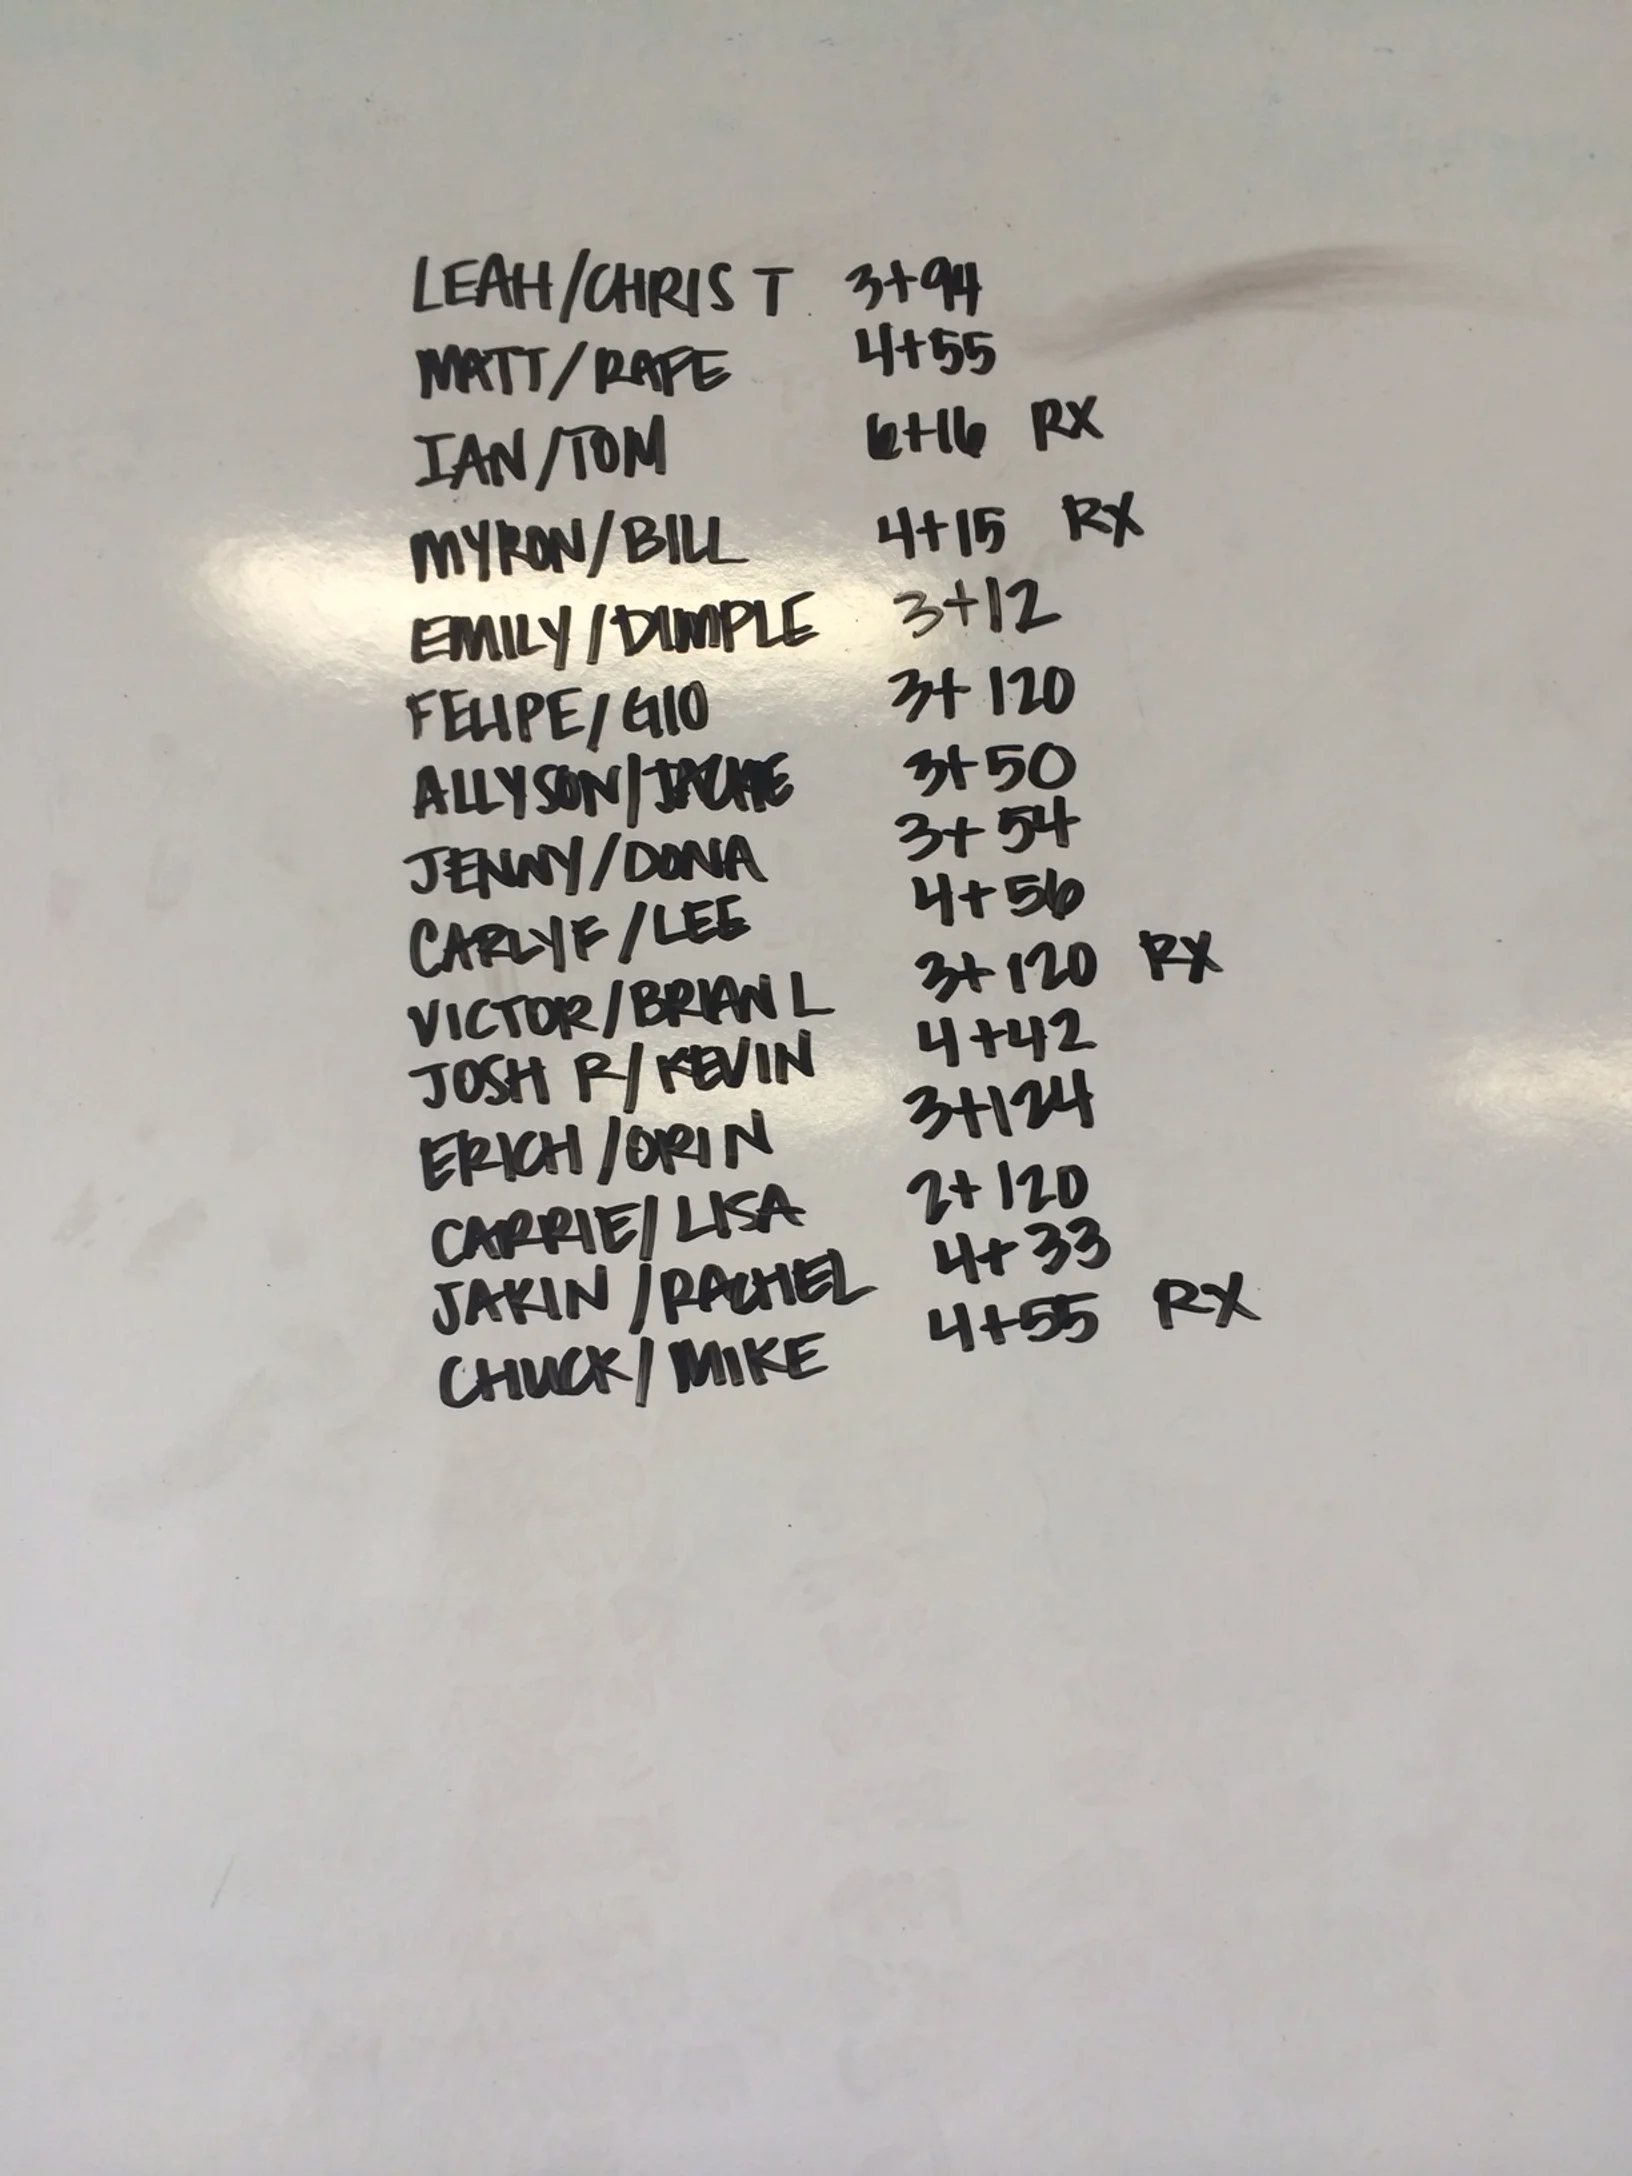 LEAH/CHRIS T 3+94
MATT/RAFE 4+55
IAN/TOM 6+16 RX
MYRON/BILL 4+15 RX
EMILY/DIMPLE 3+12
FELIPE/GIO 3+120
ALLYSON/JACKIE 3+50
JENNY/DONA 3+54
CARLY F/LEE 4+56
VICTOR/BRIAN L 3+120 RX
JOSH R/KEVIN 4+42
ERICH/ORIN 3+124
CARRIE/LISA 2+120
JAKIN/RACHEL 4+33
CHUCK/MIKE 4+55 RX